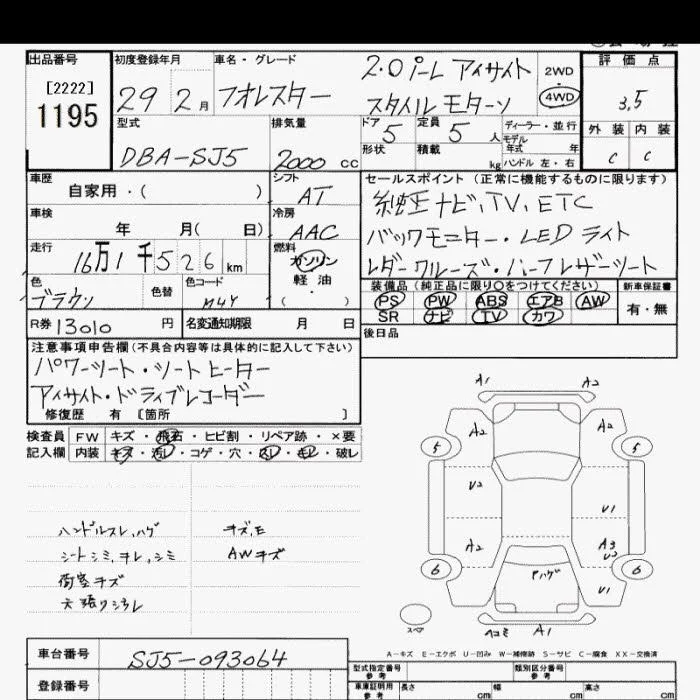 出品番号
[2222]
1195
初度登録年月
29年2月
車名・グレード
フォレスター
2.0i-L アイサイト
スタイルモダーン
2WD
4WD
評価点
3.5
外装 内装
C C
型式
DBA-SJ5
排気量
2000 cc
ドア 5
定員 5 人
形状
積載 kg
ディーラー・並行
モデル年式 年
ハンドル 左・右
車歴
自家用・( )
シフト
AT
車検
年 月( 日)
冷房
AAC
走行
16万1千526 km
燃料
ガソリン
軽油
( ・ )
色
ブラウン
色替
色コード
R券 13010 円
名変通知期限 月 日
セールスポイント (正常に機能するものに限ります)
純正ナビ,TV,ETC
バックモニター・LEDライト
レダークルーズ・ハーフレザーシート
装備品(純正品に限り○をつけてください)
PS PW ABS エアB AW
SR ナビ TV カワ
新車保証書
有・無
後日品
注意事項申告欄(不具合内容等は具体的に記入して下さい)
パワーシート・シートヒーター
アイサイト・ドライブレコーダー
修復歴 有 [箇所 ]
検査員記入欄
FW キズ・飛石・ヒビ割・リペア跡・×要
内装 キズ・汚レ・コゲ・穴・スレ・モレ・破レ
ハンドルスレ,ハゲ
シートシミ,チレ,シミ
荷室キズ
キズ,E
AWキズ
A1 A2
A2 A2
5 5
U2 U1
A2 A3
U2
6 6
U1
Pハゲ
スペア
Aコミ A1
A-キズ E-エクボ U-凹み W-補修跡 S-サビ C-腐食 XX-交換済
車台番号
SJ5-093064
登録番号
型式指定番号 参考
類別区分番号 参考
車庫証明用 参考
長さ cm
幅 cm
高さ cm